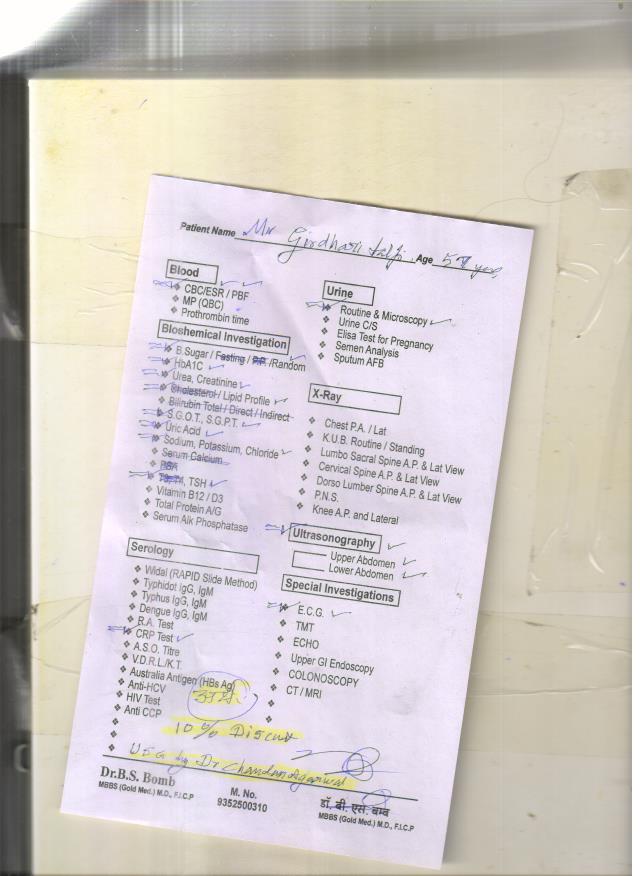 Patient Name Mr Girdhari lalji Age 57 yrs
Blood
CBC/ESR / PBF
MP (QBC)
Prothrombin time
Bioshemical Investigation
B.Sugar / Fasting / P.P. /Random
HbA1C
Urea, Creatinine
Cholesterol / Lipid Profile
Bilirubin Total / Direct / Indirect
S.G.O.T., S.G.P.T.
Uric Acid
Sodium, Potassium, Chloride
Serum Calcium
PSA
TSH
Vitamin B12 / D3
Total Protein A/G
Serum Alk Phosphatase
Serology
Widal (RAPID Slide Method)
Typhidot IgG, IgM
Typhus IgG, IgM
Dengue IgG, IgM
R.A. Test
CRP Test
A.S.O. Titre
V.D.R.L./K.T.
Australia Antigen (HBs Ag)
Anti-HCV
HIV Test
Anti CCP
Urine
Routine & Microscopy
Urine C/S
Elisa Test for Pregnancy
Semen Analysis
Sputum AFB
X-Ray
Chest P.A. / Lat
K.U.B. Routine / Standing
Lumbo Sacral Spine A.P. & Lat View
Cervical Spine A.P. & Lat View
Dorso Lumber Spine A.P. & Lat View
P.N.S.
Knee A.P. and Lateral
Ultrasonography
Upper Abdomen
Lower Abdomen
Special Investigations
E.C.G.
TMT
ECHO
Upper GI Endoscopy
COLONOSCOPY
CT / MRI
10% Discut
USG by Dr Chandan Agarwal
Dr.B.S. Bomb
MBBS (Gold Med.) M.D., F.I.C.P
M. No.
9352500310
डॉ. बी. एस. बम्ब
MBBS (Gold Med.) M.D., F.I.C.P